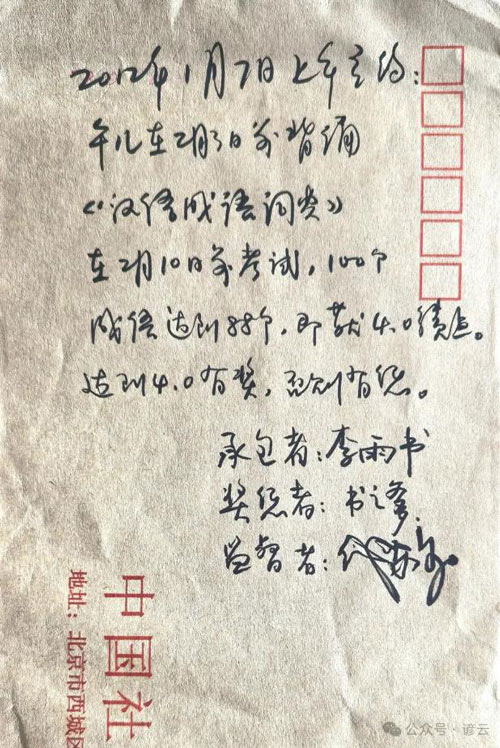 2012年1月7日上午立约：
午儿在2月3日前背诵
《汉语成语词典》
在2月10日前考试，100个
成语达到88个，即获4.0绩点。
达到4.0有奖，否则有惩。
承包者：李雨书
奖惩者：书之爹
监督者：
中国社
地址：北京市西城区
公众号·谚云